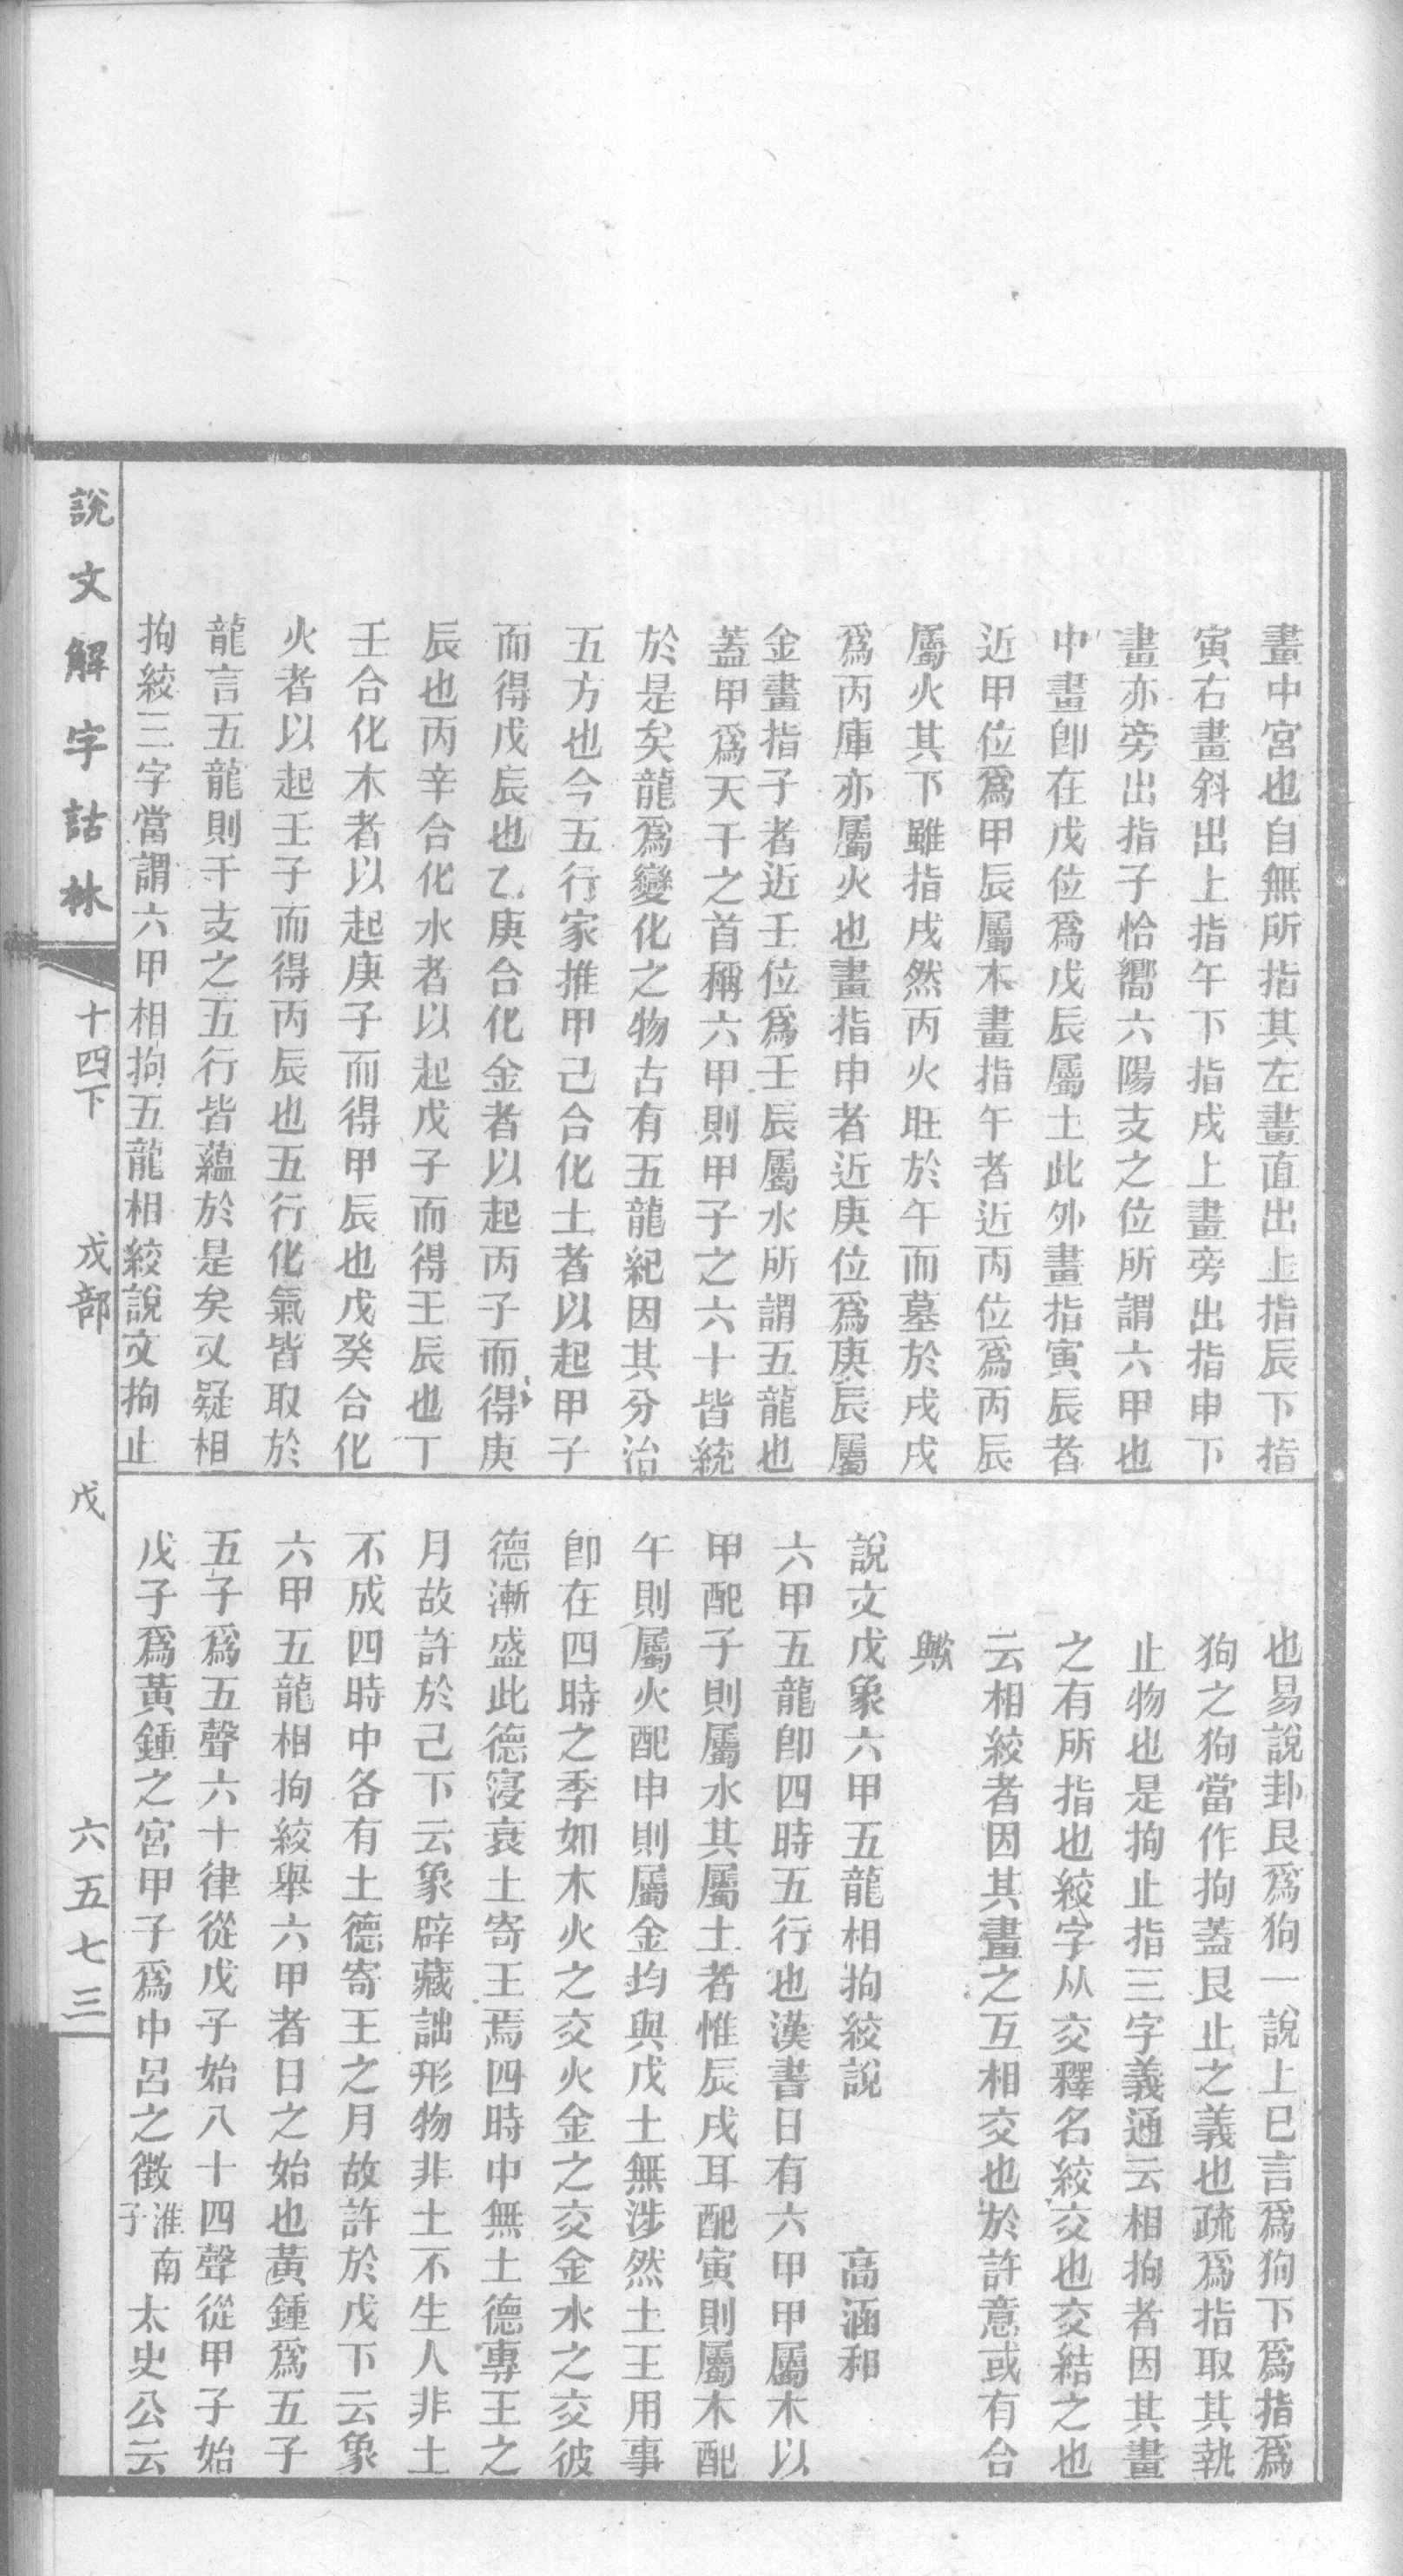 畫中宮也自無所指其左畫直出上指辰下指
寅右畫斜出上指午下指戌上畫旁出指申下
畫亦旁出指子恰嚮六陽支之位所謂六甲也
中畫卽在戊位爲戊辰屬土此外畫指寅辰者
近甲位爲甲辰屬木畫指午者近丙位爲丙辰
屬火其下雖指戌然丙火旺於午而墓於戌戌
爲丙庫亦屬火也畫指申者近庚位爲庚辰屬
金畫指子者近壬位爲壬辰屬水所謂五龍也
蓋甲爲天干之首稱六甲則甲子之六十皆統
於是矣龍爲變化之物古有五龍紀因其分治
五方也今五行家推甲己合化土者以起甲子
而得戊辰也乙庚合化金者以起丙子而得庚
辰也丙辛合化水者以起戊子而得壬辰也丁
壬合化木者以起庚子而得甲辰也戊癸合化
火者以起壬子而得丙辰也五行化氣皆取於
龍言五龍則干支之五行皆蘊於是矣又疑相
拘絞三字當謂六甲相拘五龍相絞說文拘止
也易說卦艮爲狗一說上已言爲狗下爲指爲
狗之狗當作拘蓋艮止之義也疏爲指取其執
止物也是拘止指三字義通云相拘者因其畫
之有所指也絞字从交釋名絞交也交結之也
云相絞者因其畫之互相交也於許意或有合
歟
說文戊象六甲五龍相拘絞說 高涵和
六甲五龍卽四時五行也漢書日有六甲甲屬木以
甲配子則屬水其屬土者惟辰戌耳配寅則屬木配
午則屬火配申則屬金均與戊土無涉然土王用事
卽在四時之季如木火之交火金之交金水之交彼
德漸盛此德寖衰土寄王焉四時中無土德專王之
月故許於己下云象辟藏詘形物非土不生人非土
不成四時中各有土德寄王之月故許於戊下云象
六甲五龍相拘絞舉六甲者日之始也黃鍾爲五子
五子爲五聲六十律從戊子始八十四聲從甲子始
戊子爲黃鍾之宮甲子爲中呂之徵淮南子太史公云
說文解字詁林 十四下 戊部 戊 六五七三